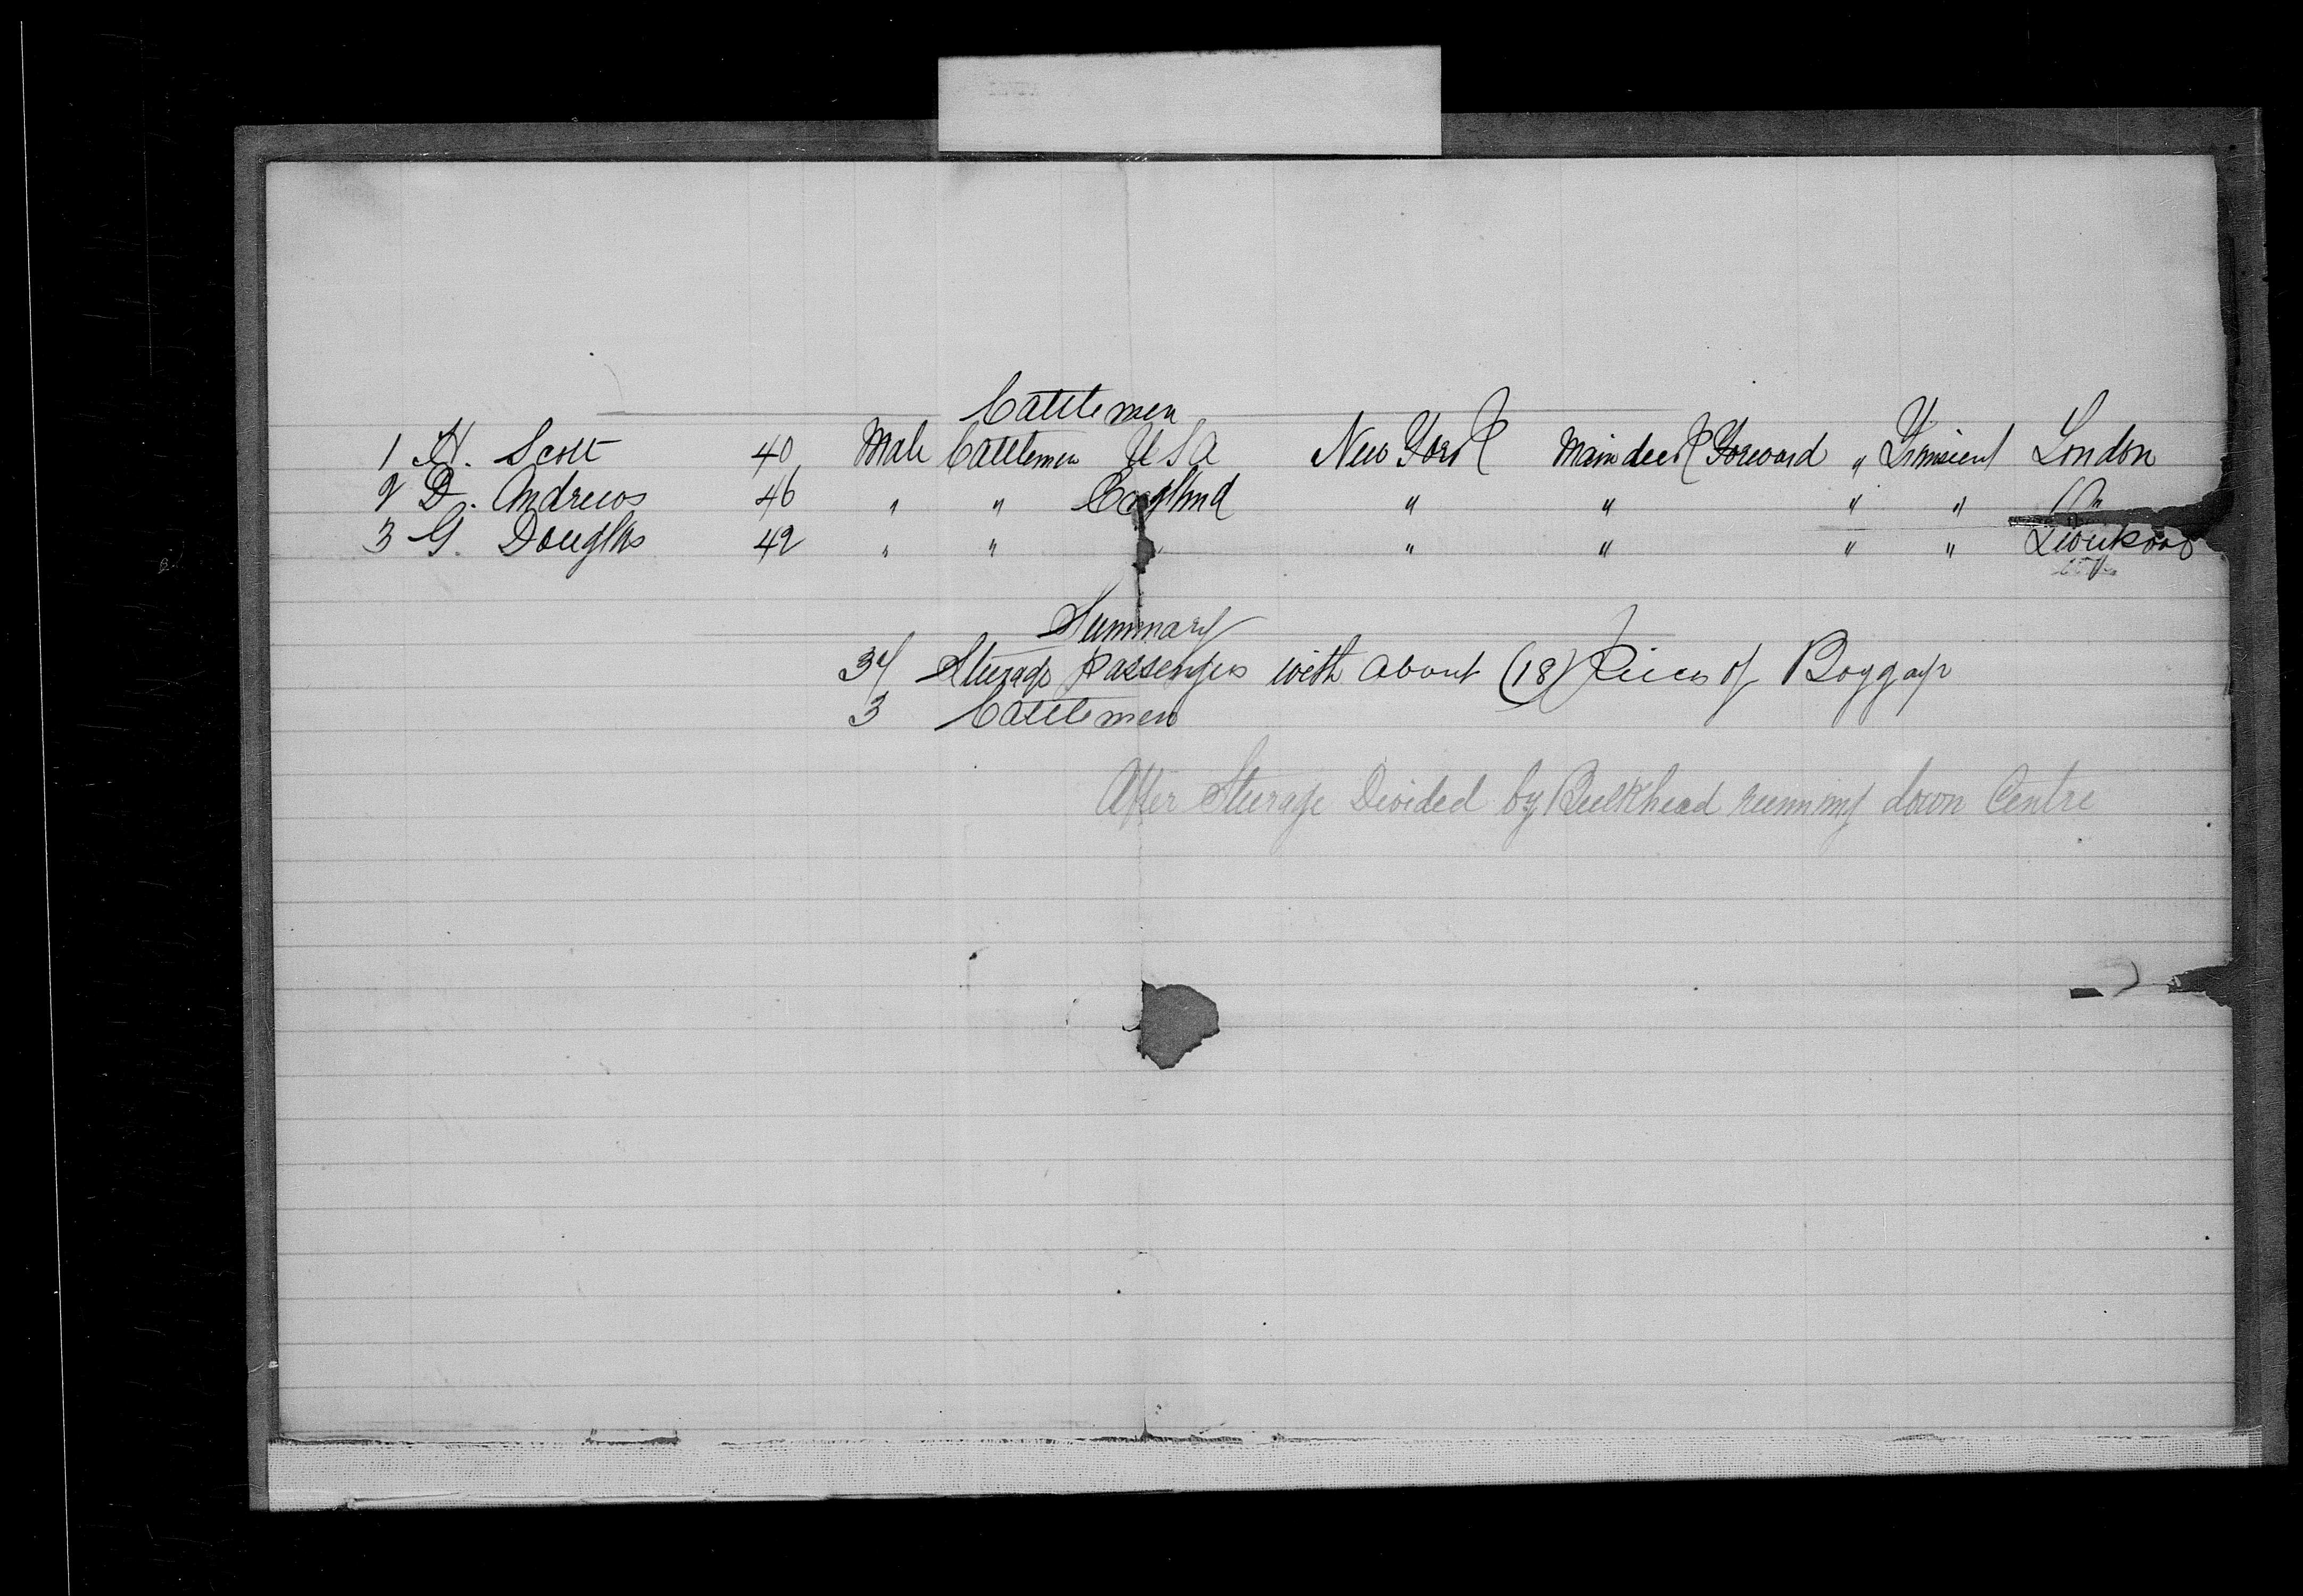 Cattlemen
1 H. Scott 40 Male Cattlemen USA New York Main deck Forward " Transient London
2 D. Andrews 46 " " England " " " "
3 G. Douglas 42 " " " " " " " Liverpool
Summary
34 Steerage Passengers with about (18) Pieces of Baggage
3 Cattlemen
After Steerage Divided by Bulkhead running down Centre